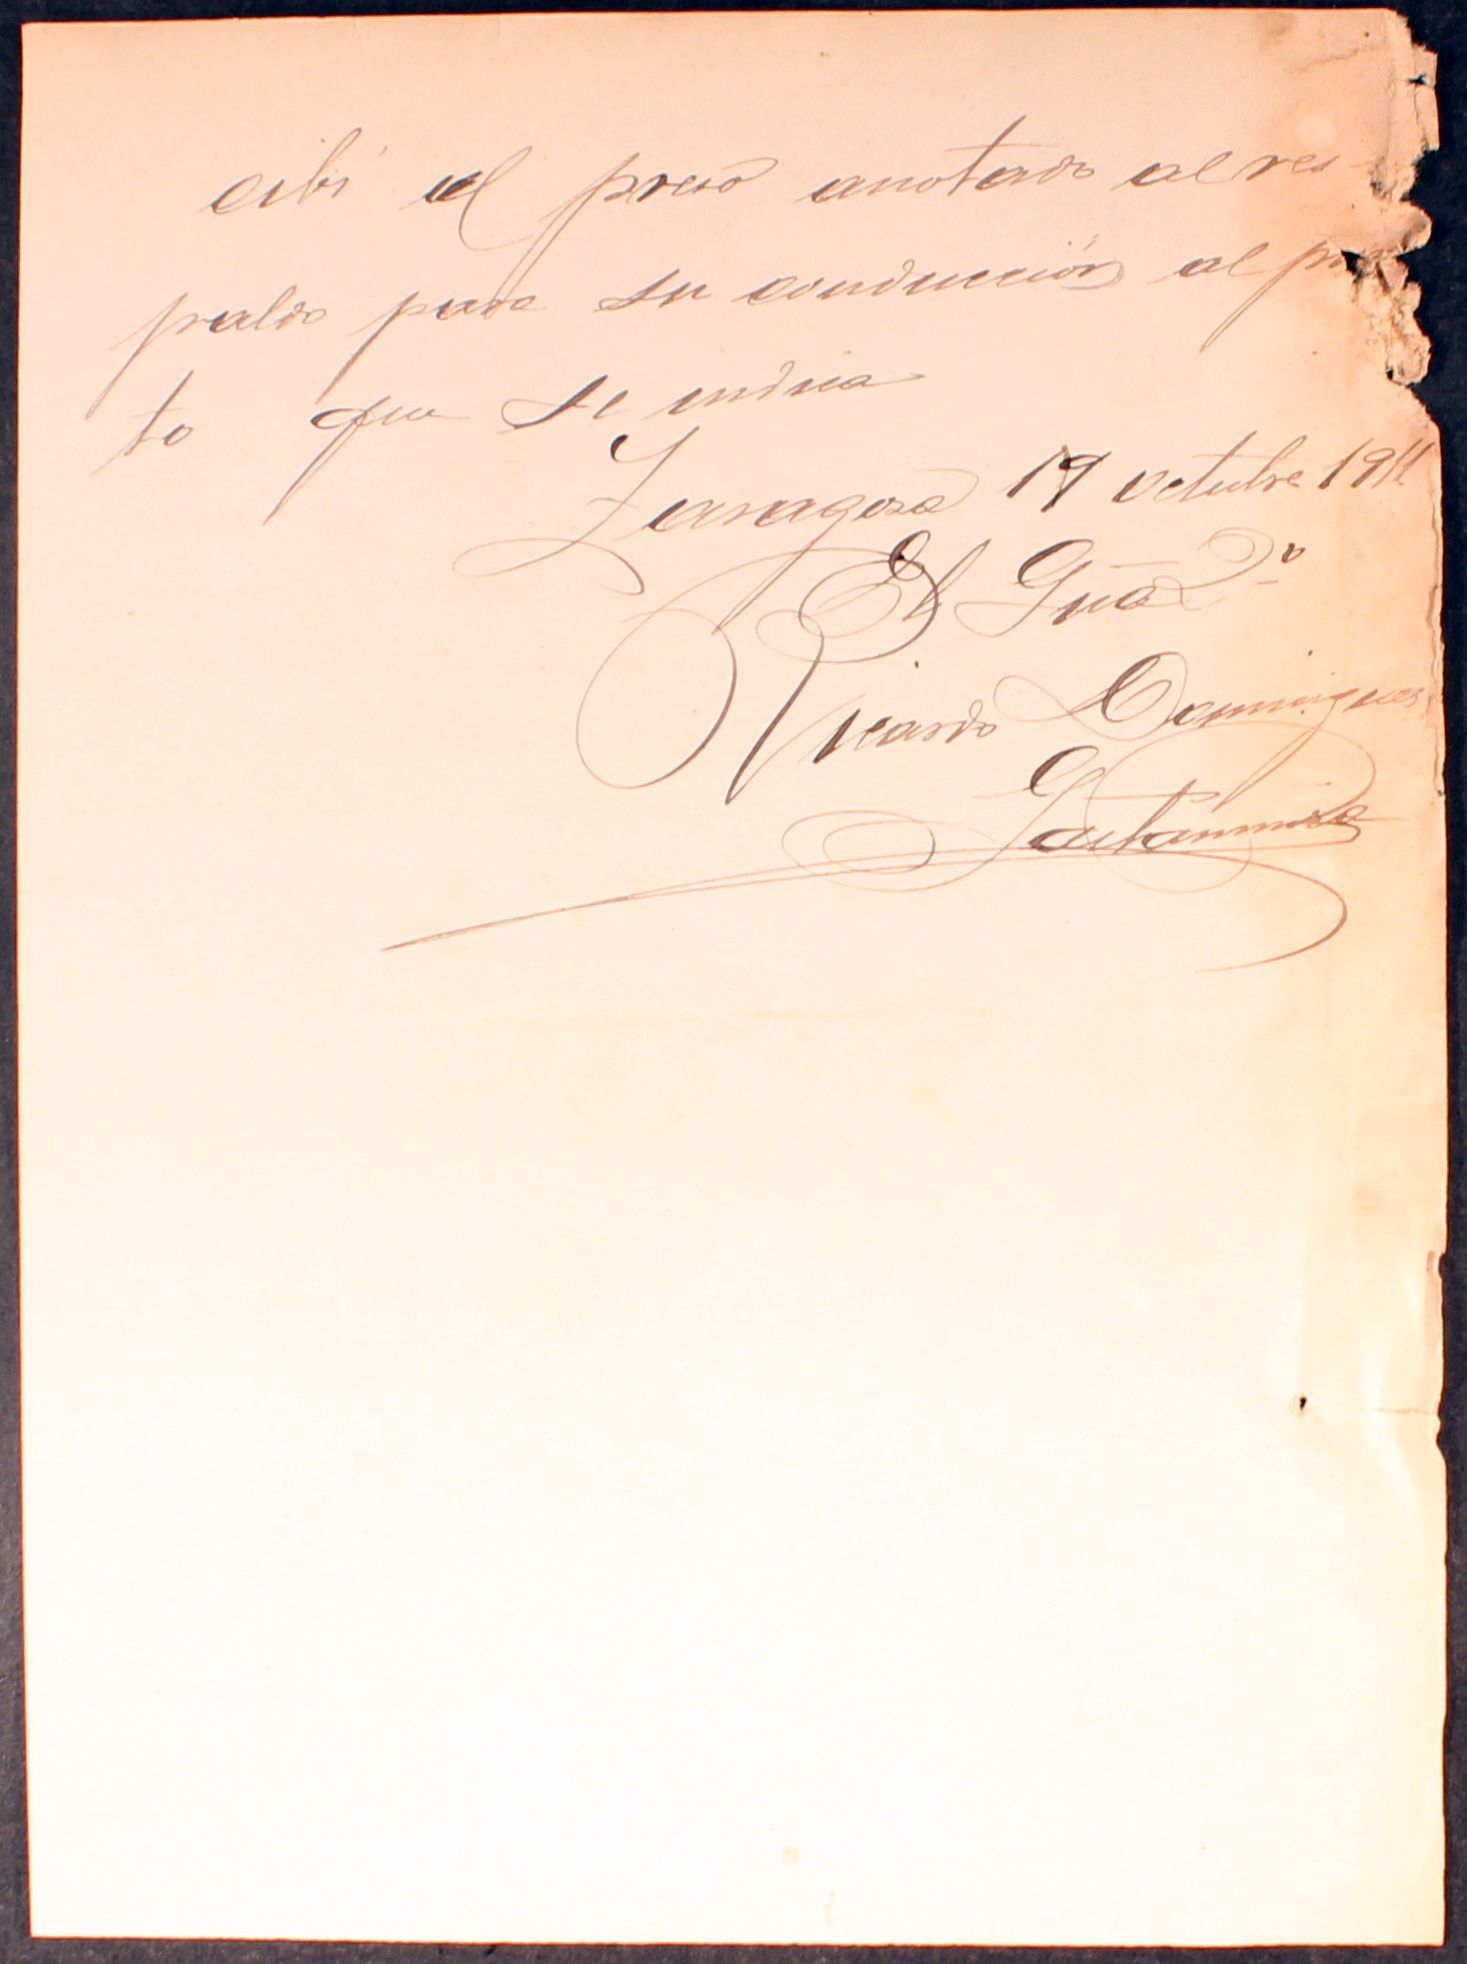 cibí el preso anotado al res-
paldo para su conducción al pun
to que se indica
Zaragoza 19 octubre 1911.
El Gūa 2º
Ricardo Dominguez